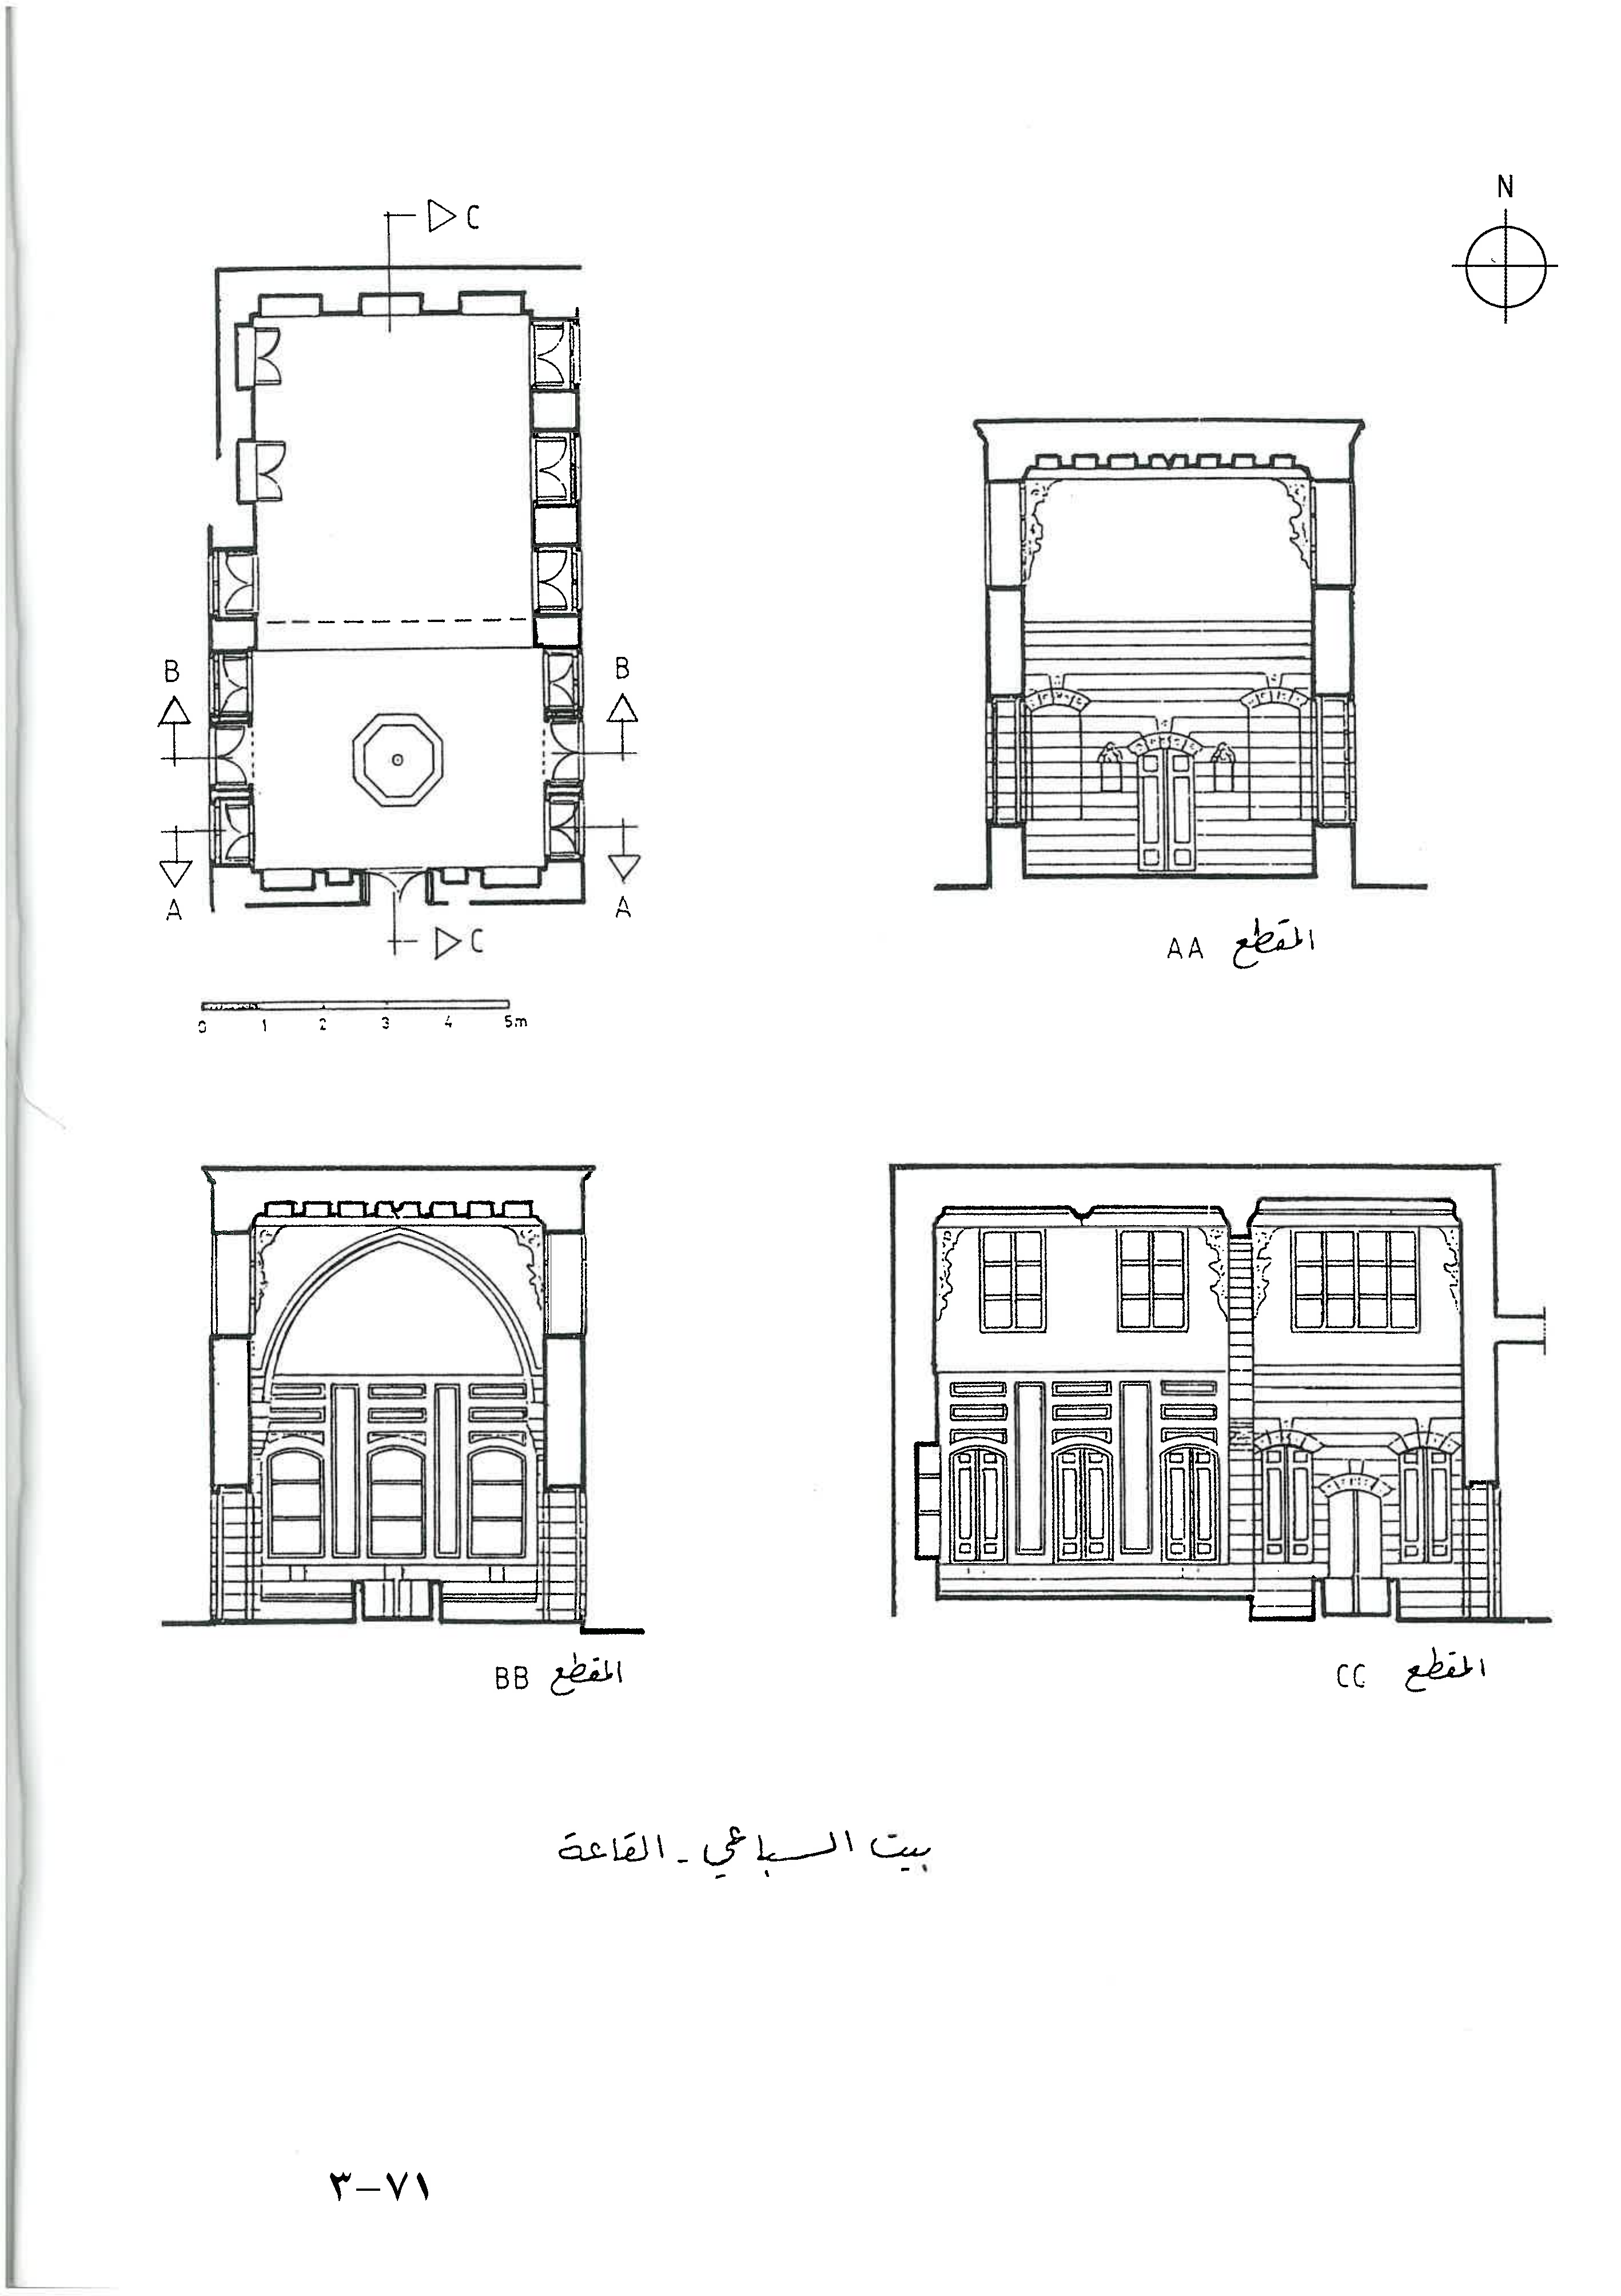 N
C
B B
A A
C
0 1 2 3 4 5m
المقطع AA
المقطع BB
المقطع CC
بيت السباعي - القاعة
٣-٧١